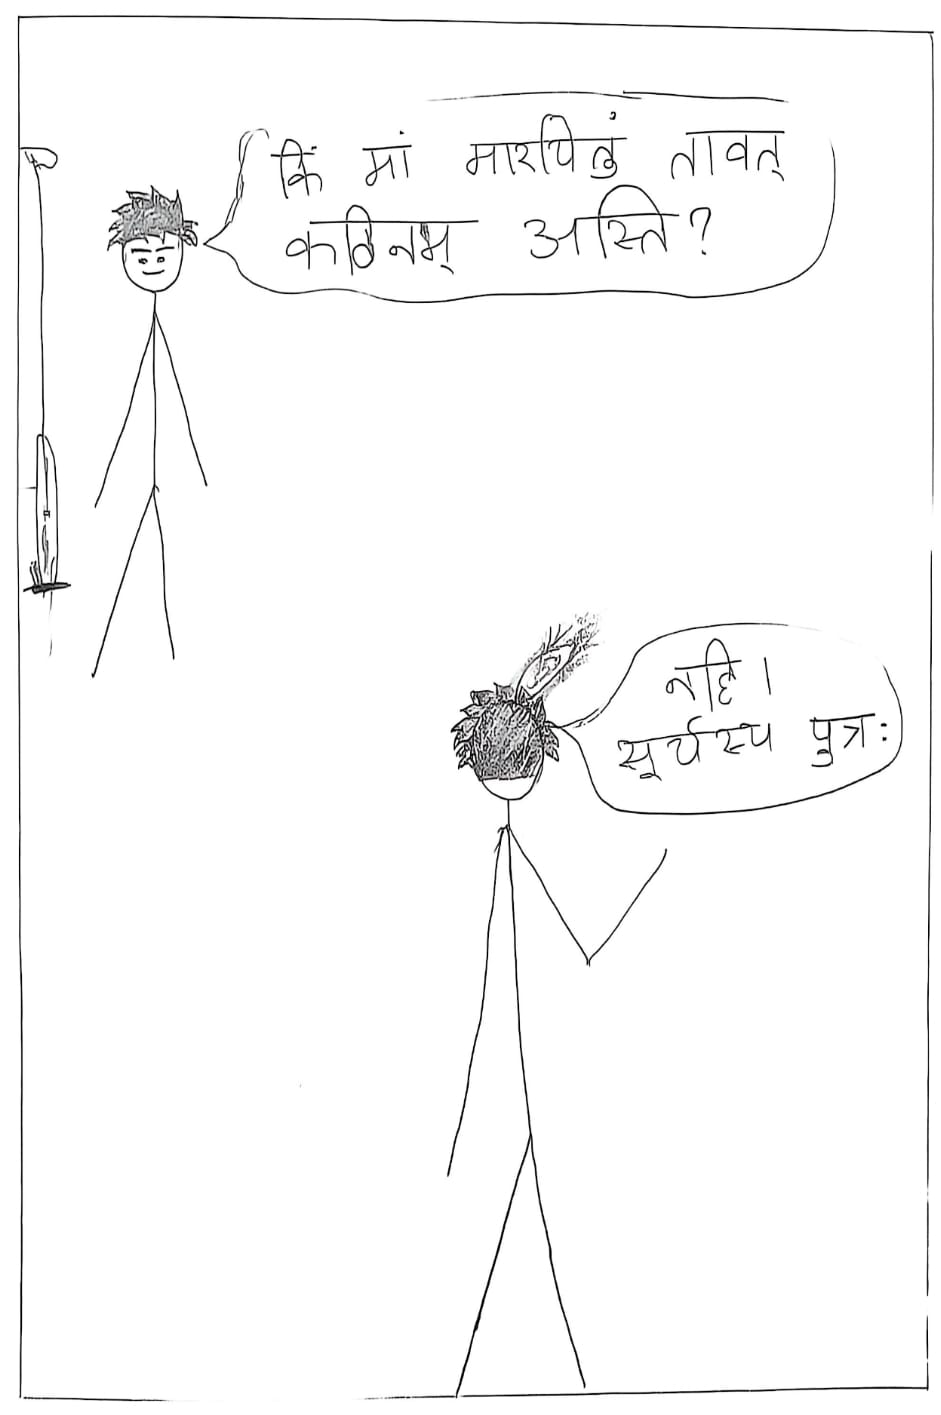 किं मां मारयितुं तावत्
कठिनम् अस्ति?
नहि।
सूर्यस्य पुत्रः